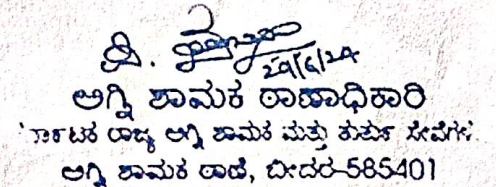 29/6/24
ಅಗ್ನಿ ಶಾಮಕ ಠಾಣಾಧಿಕಾರಿ
ರಾಜ್ಯ ಅಗ್ನಿ ಶಾಮಕ ಮತ್ತು ತುರ್ತು ಸೇವೆಗಳು
ಅಗ್ನಿ ಶಾಮಕ ಠಾಣೆ, ಬೀದರ-585401